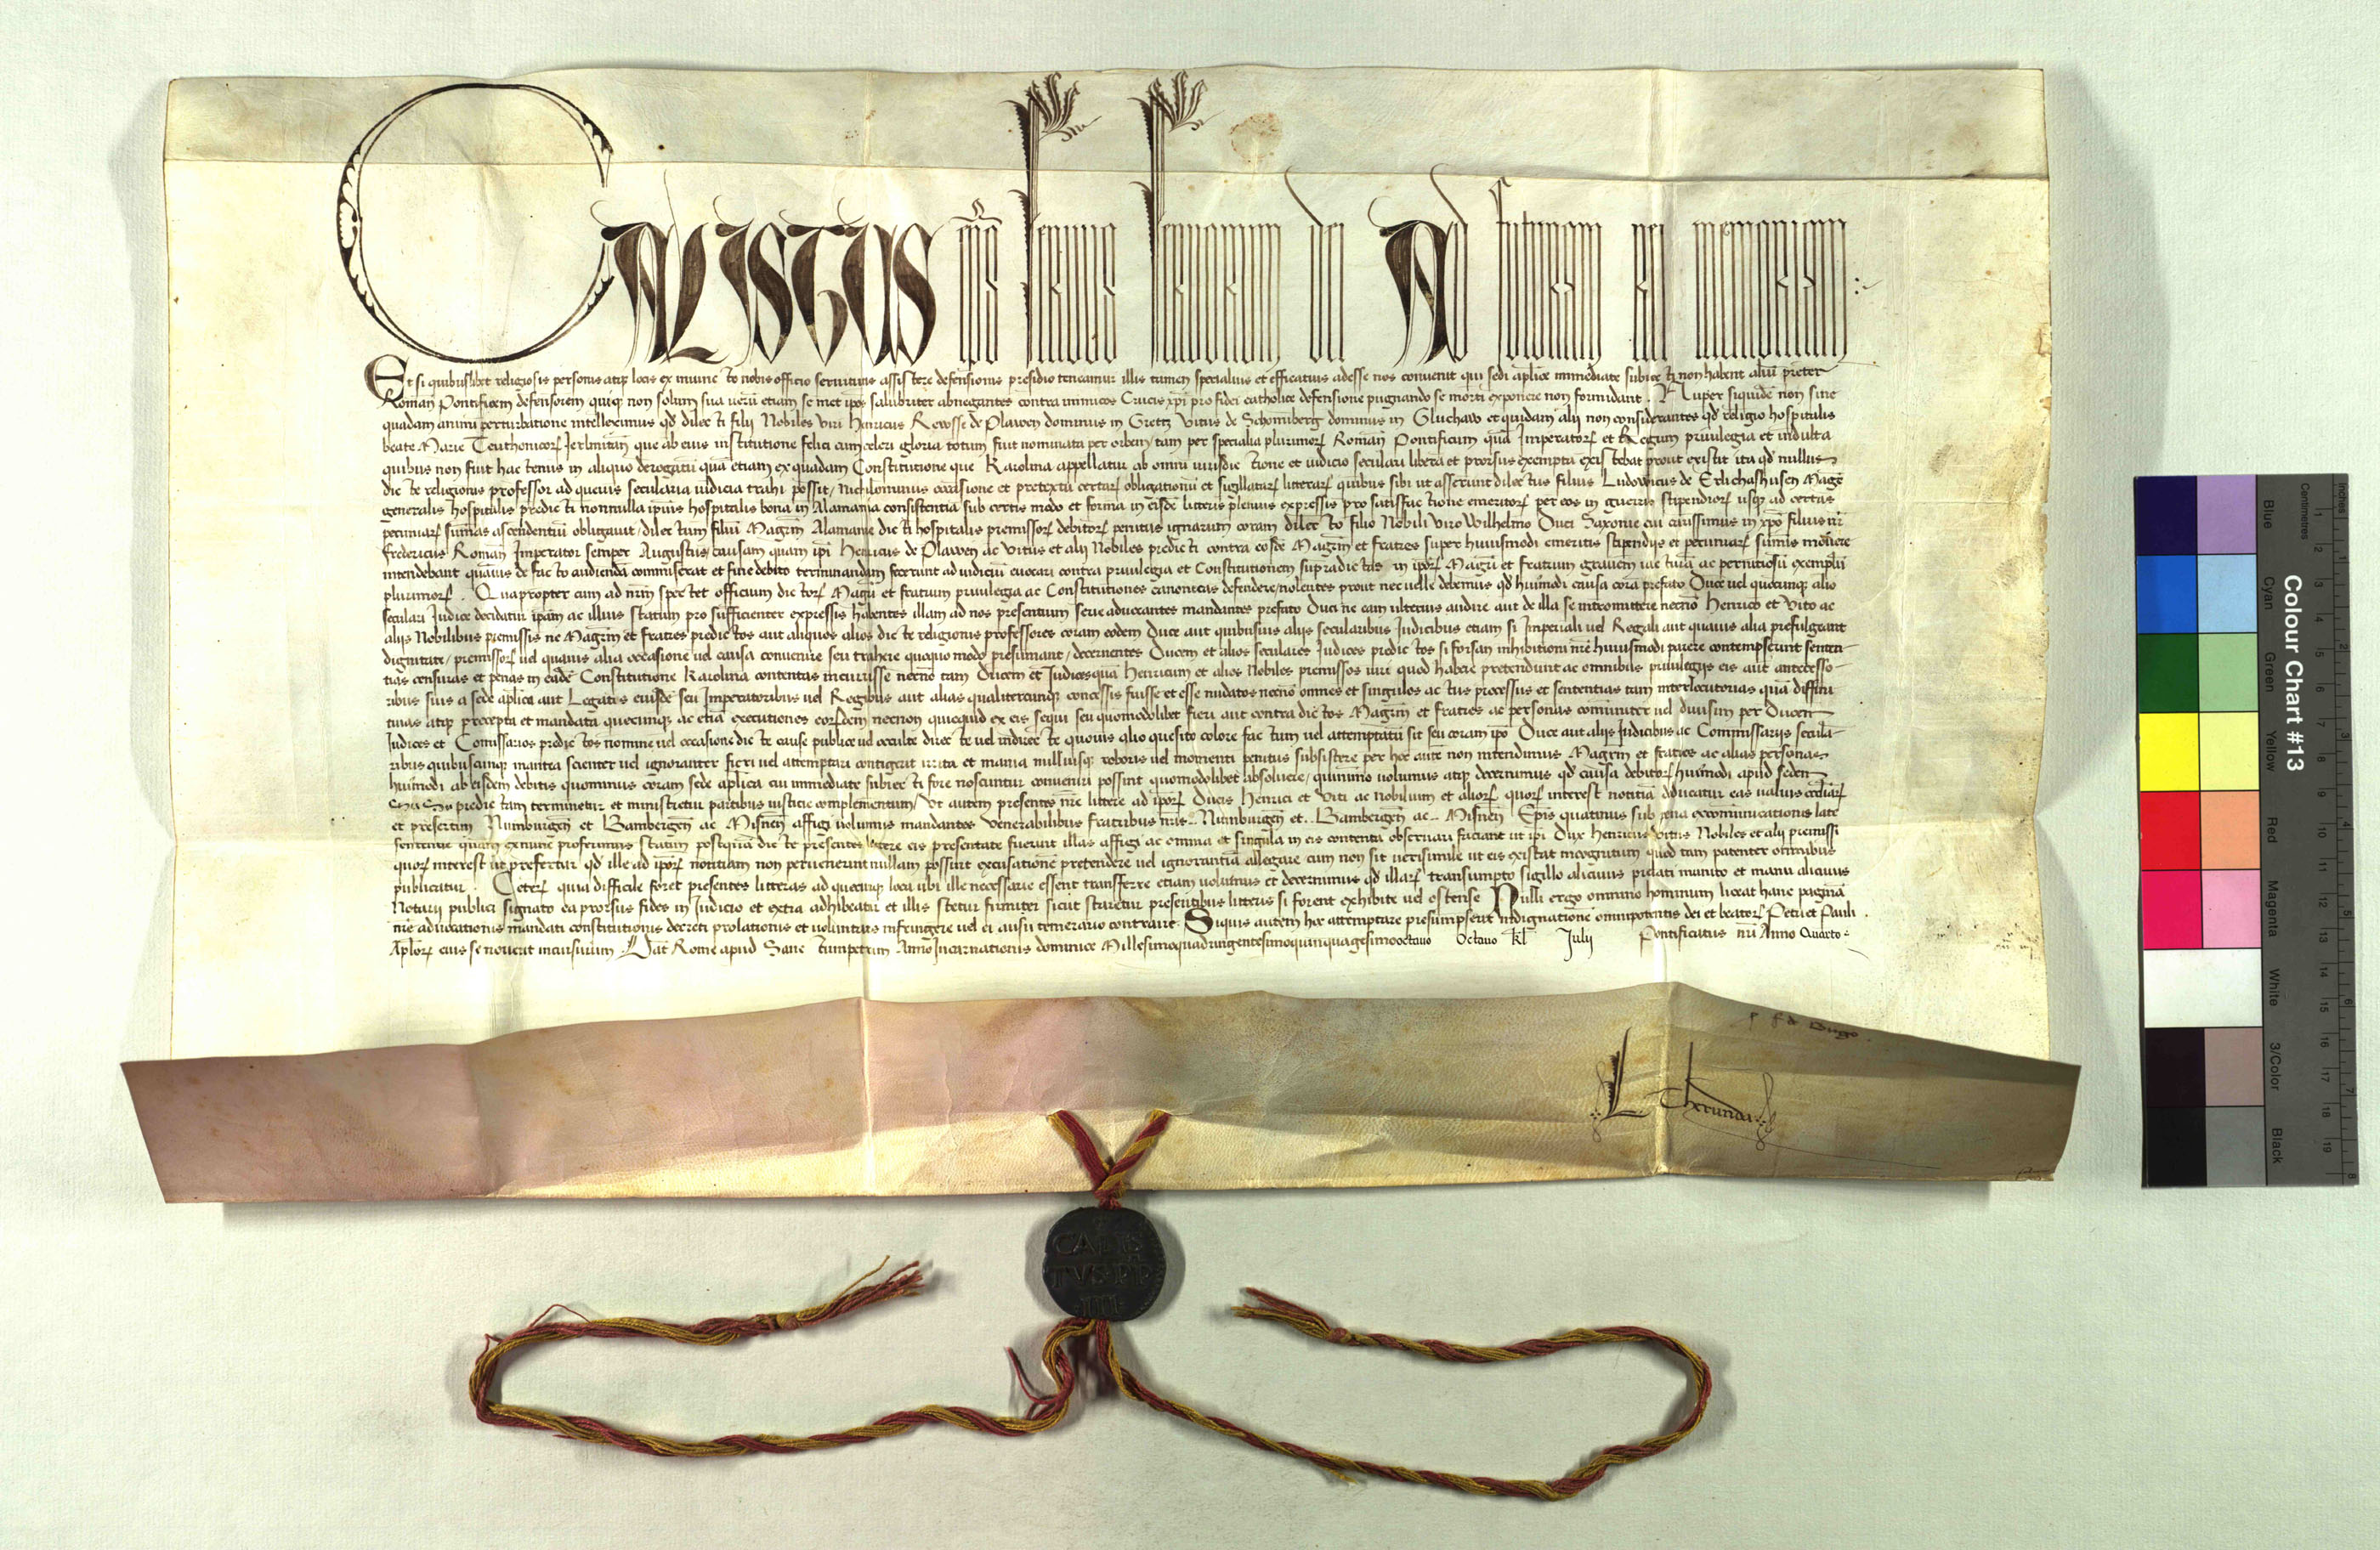 CALISTUS ep̄s seruus seruorum dei Ad futuram rei memoriam
Et si quibuslibet religiosis personis atq; locis ex iniuncto nobis officio seruitutis assistere defensionis presidio teneamur illis tamen specialius et efficatius adesse nos conuenit qui sedi aplice immediate subiecti non habent aliū preter
Romanū Pontificem defensorem quiq; non solum sua uerū etiam se met ip̄os salubriter abnegantes contra inimicos Crucis xp̄i pro fidei catholice defensione pugnando se morti exponere non formidant. Nuper siquidē non sine
quadam animi perturbatione intelleximus qd̄ dilecti filij Nobiles viri Henricus Rewsse de Plawen dominus in Gretz Vitus de Schonnberg dominus in Gluchaw et quidam alij non considerantes qd̄ religio hospitalis
beate Marie Teuthonicoꝝ Jerlmitan̄ que ab eius institutione felici cum celeri gloria totum fuit nominata per orbem, tam per specialia plurimoꝝ Romanoꝝ Pontificum quā Imperatoꝝ et Regum priuilegia et indulta
quibus non fuit hactenus in aliquo derogatū quā etiam ex quadam Constitutione que Karolina appellatur ab omni iurisdictione et iudicio seculari libera et prorsus exempta existebat prout existit ita qd̄ nullus
dicte religionis professor ad queuis secularia iudicia trahi possit, nichilominus occasione et pretextu certaꝝ obligationū et sigillataꝝ litteraꝝ quibus sibi ut asserunt dilectus filius Ludowicus de Erlichashusen Magr̄
generalis hospitalis predicti nonnulla ipsius hospitalis bona in Alamania consistentia sub certis modo et forma in eisdē litteris plenius expressis pro satisfactione emeritoꝝ per eos in guerris stipendioꝝ usq; ad certas
pecuniaꝝ sūmas ascendentiū obligauit, dilectum filiū Magrm̄ Alamanie dicti hospitalis premissoꝝ debitoꝝ penitus ignarum coram dilecto filio Nobili viro Wilhelmo Duci Saxonie cui carissimus in xp̄o filius nr̄
Fredericus Romanoꝝ Imperator semper Augustus, causam quam ip̄i Henricus de Plawen ac Vitus et alij Nobiles predicti contra eosdē Magrm̄ et fratres super huiusmodi emeritis stipendijs et pecuniaꝝ sūmis mouere
intendebant quāuis de facto audiendā commiserat et fine debito terminandam fecerunt ad iudiciū euocari contra priuilegia et Constitutionem supradictas in ip̄oꝝ Magrī et fratrum grauem iacturā ac pernitiosū exemplū
plurimoꝝ. Quapropter cum ad nrm̄ spectet officium dictoꝝ Magrī et fratrum priuilegia ac Constitutiones canonicas defendere, nolentes prout nec uelle debemus qd̄ huiusmodi causa corā prefato Duce uel quocunq; alio
seculari Judice decidatur ip̄am ac illius statum pro sufficienter expressis habentes illam ad nos presentium serie aduocantes mandantes prefato Duci ne eam ulterius audire aut de illa se intromittere necnō Henrico et Vito ac
alijs Nobilibus premissis ne Magrm̄ et fratres predictos aut aliquos alios dicte religionis professores coram eodem Duce aut quibusuis alijs secularibus Judicibus etiam si Imperiali uel Regali aut quauis alia prefulgeant
dignitate, premissoꝝ uel quauis alia occasione uel causa conuenire seu trahere quoquo modo presumant, decernentes Ducem et alios seculares Judices predictos si forsan inhibitioni nr̄e huiusmodi parere contempserint senten
tias censuras et penas in eadē Constitutione Karolina contentas incurrisse necnō tam Ducem et Judices quā Henricum et alios Nobiles premissos iuri quod habere pretendunt ac omnibus priuilegijs eis aut antecesso
ribus suis a sede aplica aut Legatis eiusdē seu Imperatoribus uel Regibus aut alias qualitercunq; concessis fuisse et esse nudatos necnō omnes et singulos actus processus et sententias tam interlocutorias quā diffini
tiuas atq; precepta et mandata quecunq; ac etiā executiones eoꝝdem necnon quicquid ex eis sequi seu quomodolibet fieri aut contra dictos Magrm̄ et fratres ac personas coniunter uel diuisim per Ducem
Judices et Comissarios predictos nomine uel occasione dicte cause publice uel occulte directe uel indirecte quouis alio quesito colore factum uel attemptatū sit seu coram ip̄o Duce aut alijs Judicibus ac Commissarijs secula
ribus quibuscunq; inantea scienter uel ignoranter fieri uel attemptari contigerit irrita et inania nulliusq; roboris uel momenti penitus subsistere per hec autē non intendimus Magrm̄ et fratres ac alias personas
huiusmodi ab eisdem debitis quominus coram sede aplica cui immediate subiecti fore noscuntur conueniri possint quomodolibet absoluere, quinimo uolumus atq; decernimus qd̄ causa debitoꝝ huiusmodi apud sedem
predictam terminetur et ministretur partibus iusticie complementum, Vt autem presentes nr̄e littere ad ip̄oꝝ Ducis Henrici et Viti ac nobilium et alioꝝ quoꝝ interest notitiā deducatur eas ualuis eccliaꝝ
et presertim Numburgen̄ et Bambergen̄ ac Misnen̄ affigi uolumus mandantes Venerabilibus fratribus nr̄is Numburgen̄ et Bambergen̄ ac Misnen̄ Ep̄is quatinus sub pena excomunicationis late
sententie quam exnunc proferimus statim postquā dicte presentes littere eis presentate fuerint illas affigi ac omnia et singula in eis contenta obseruari faciant ut ip̄i Dux Henricus Vitus Nobiles et alij premissi
quoꝝ interest ut prefertur qd̄ ille ad ip̄oꝝ notitiam non peruenerint nullam possint excusationē pretendere uel ignorantiā allegare cum non sit uerisimile ut eis existat incognitum quod tam patenter omnibus
publicatur. Ceteꝝ quia difficile foret presentes litteras ad quecunq; loca ubi ille necessarie essent transferre etiam uolumus et decernimus qd̄ illaꝝ transumpto sigillo alicuius prelati munito et manu alicuius
Notarij publici signato ea prorsus fides in Judicio et extra adhibeatur et illis stetur firmiter sicut staretur presentibus litteris si forent exhibite uel ostense Nulli ergo omnino hominum liceat hanc paginā
nr̄e aduocationis mandati constitutionis decreti prolationis et uoluntatis infringere uel ei ausu temerario contraire. Siquis autem hoc attemptare presumpserit indignationē omnipotentis dei et beatoꝝ Petri et Pauli
Aploꝝ eius se nouerit incursurum. Dat̄ Rome apud Sanctumpetrum Anno Incarnationis dominice Millesimoquadringentesimoquinquagesimooctauo Octauo kl̄ Julij Pontificatus nr̄i Anno Quarto
L. Therunda
CALIS
TVS · PP
· III ·
Colour Chart #13
Blue Cyan Green Yellow Red Magenta White 3/Color Black
Centimetres 1 2 3 4 5 6 7 8 9 10 11 12 13 14 15 16 17 18 19
Inches 1 2 3 4 5 6 7 8